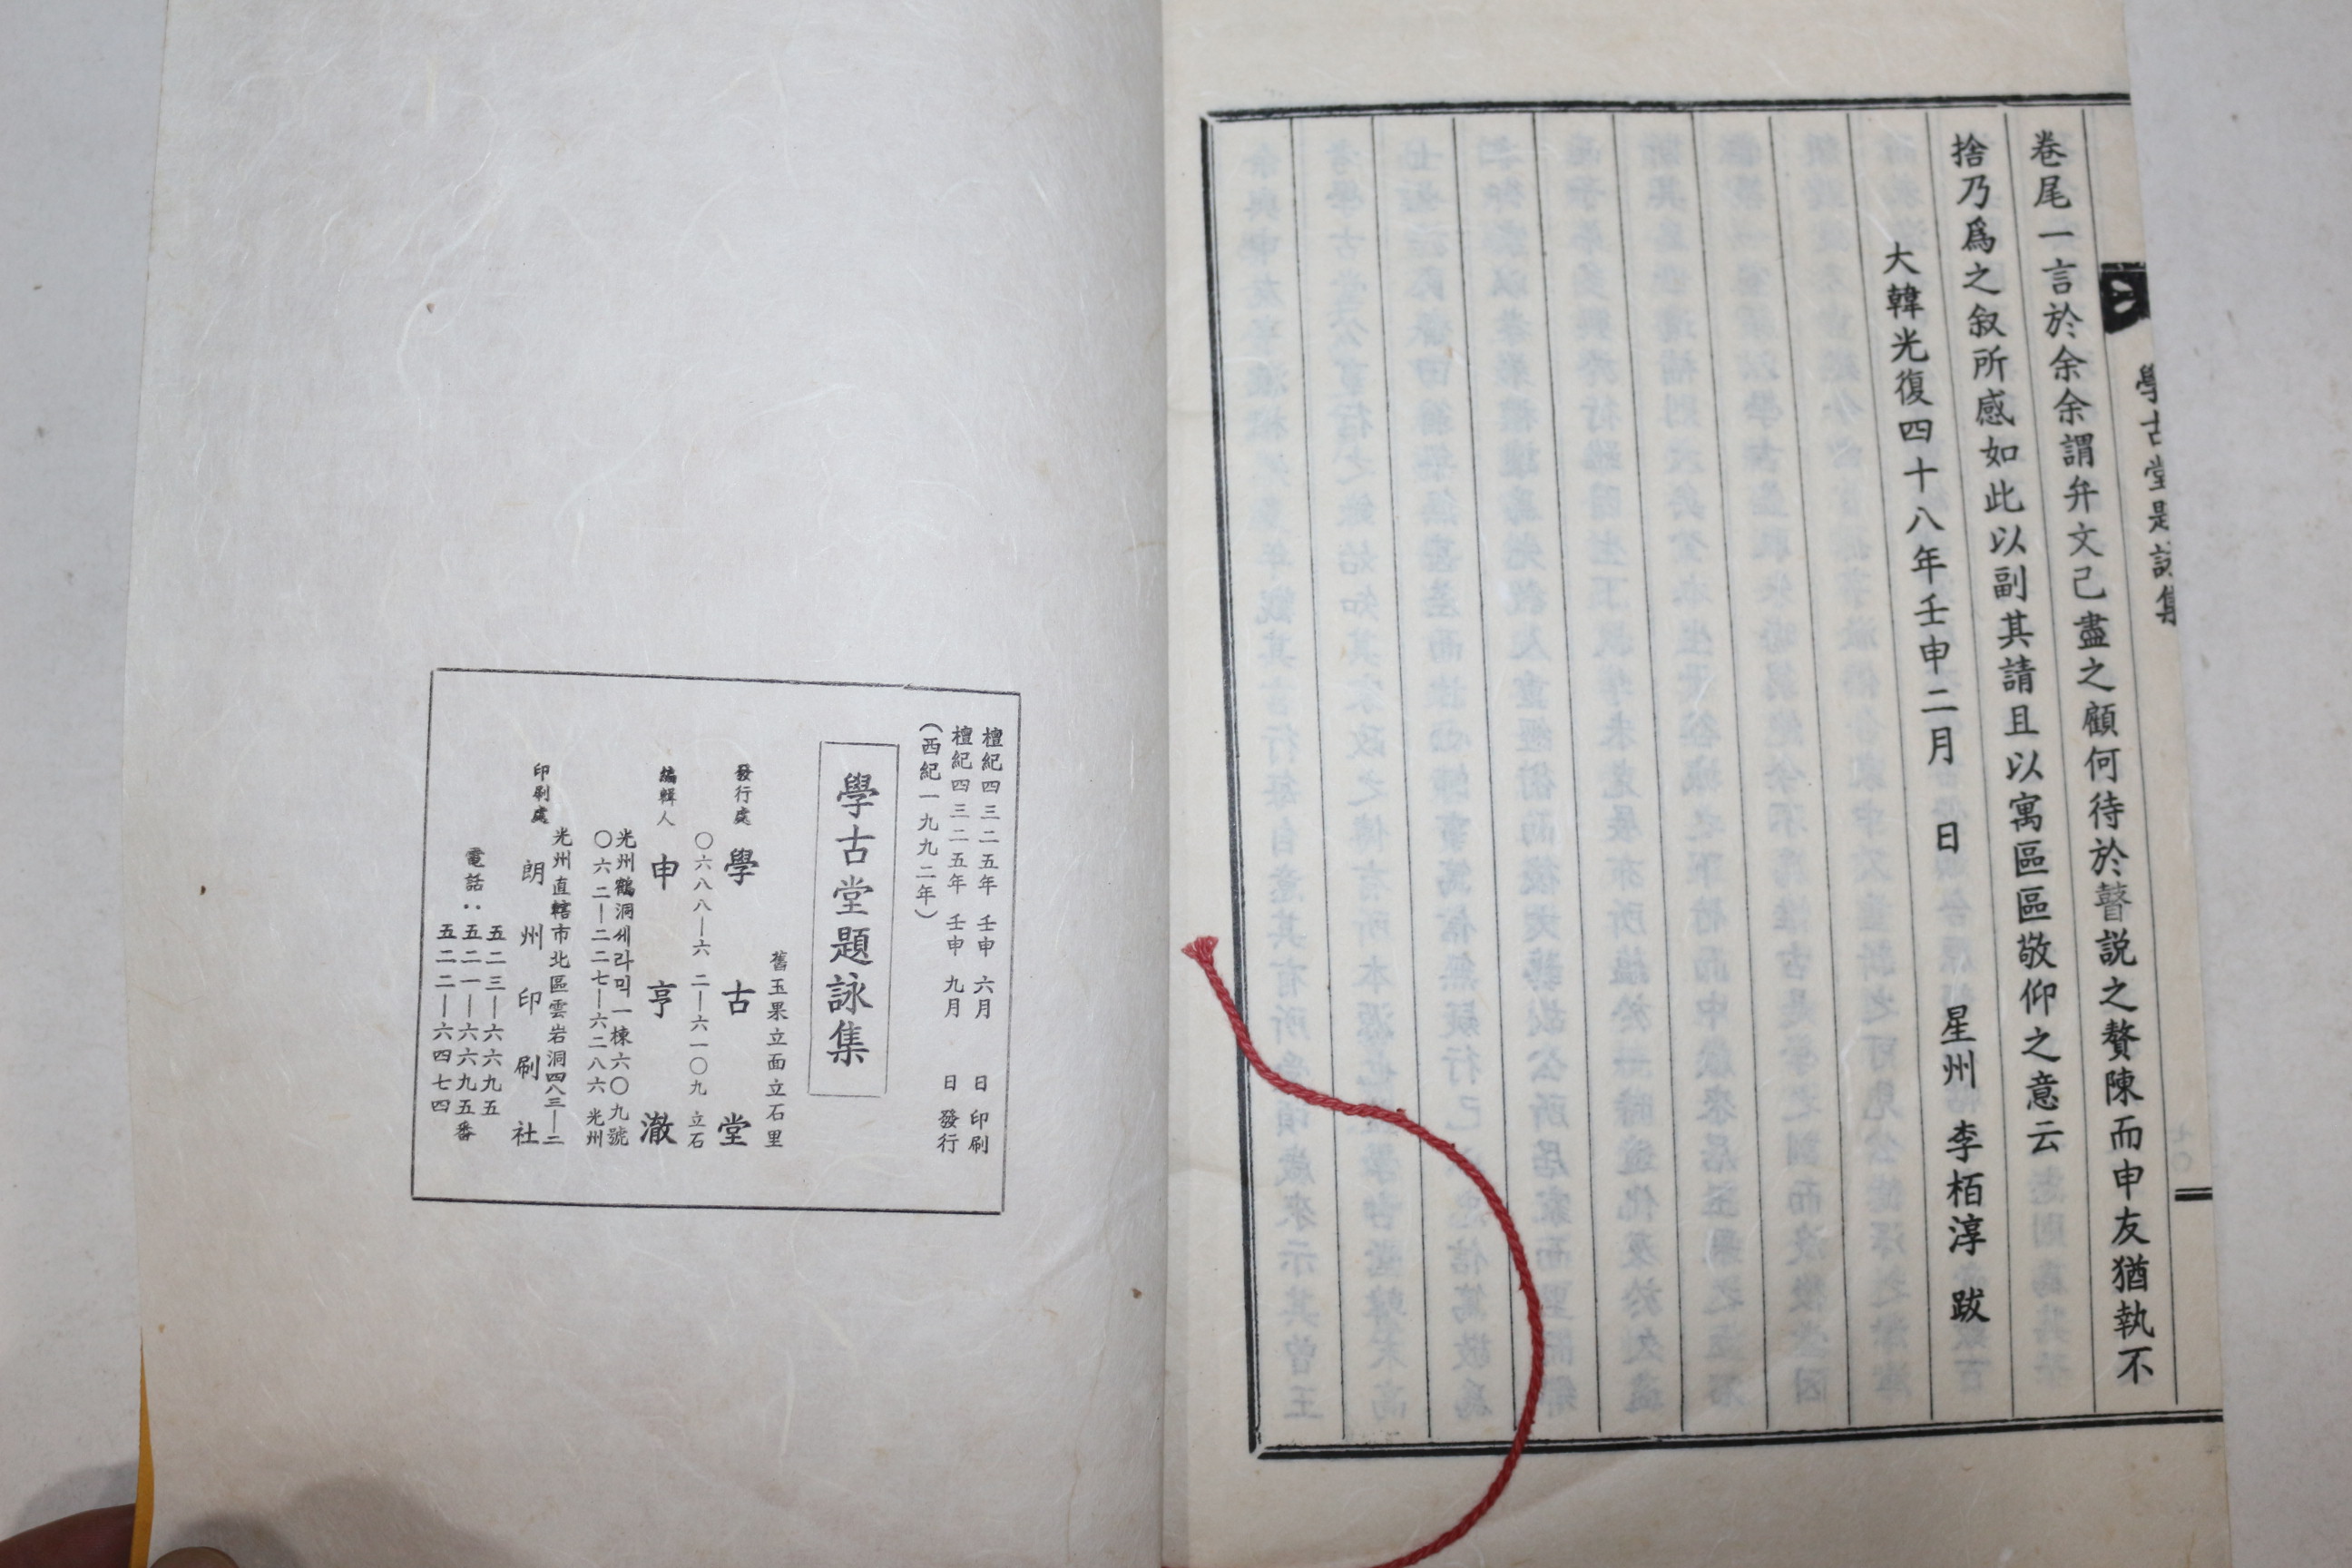 學古堂題詠集
卷尾一言於余余謂弁文己盡之顧何待於瞽説之贅陳而申友猶執不
捨乃爲之叙所感如此以副其請且以寓區區敬仰之意云
大韓光復四十八年壬申二月 日 星州 李栢淳 跋
檀紀四三二五年 壬申 六月 日 印刷
檀紀四三二五年 壬申 九月 日 發行
(西紀一九九二年)
學古堂題詠集
舊玉果立面立石里
發行處 學古堂
〇六八八—六二—六一〇九 立石
編輯人 申亨澈
光州鶴洞세라믹一棟六〇九號
〇六二—二二七—六二八六 光州
光州直轄市北區雲岩洞四八三—二
印刷處 朗州印刷社
五二三—六六九五
電話:五二一—六六九五番
五二二—六四七四